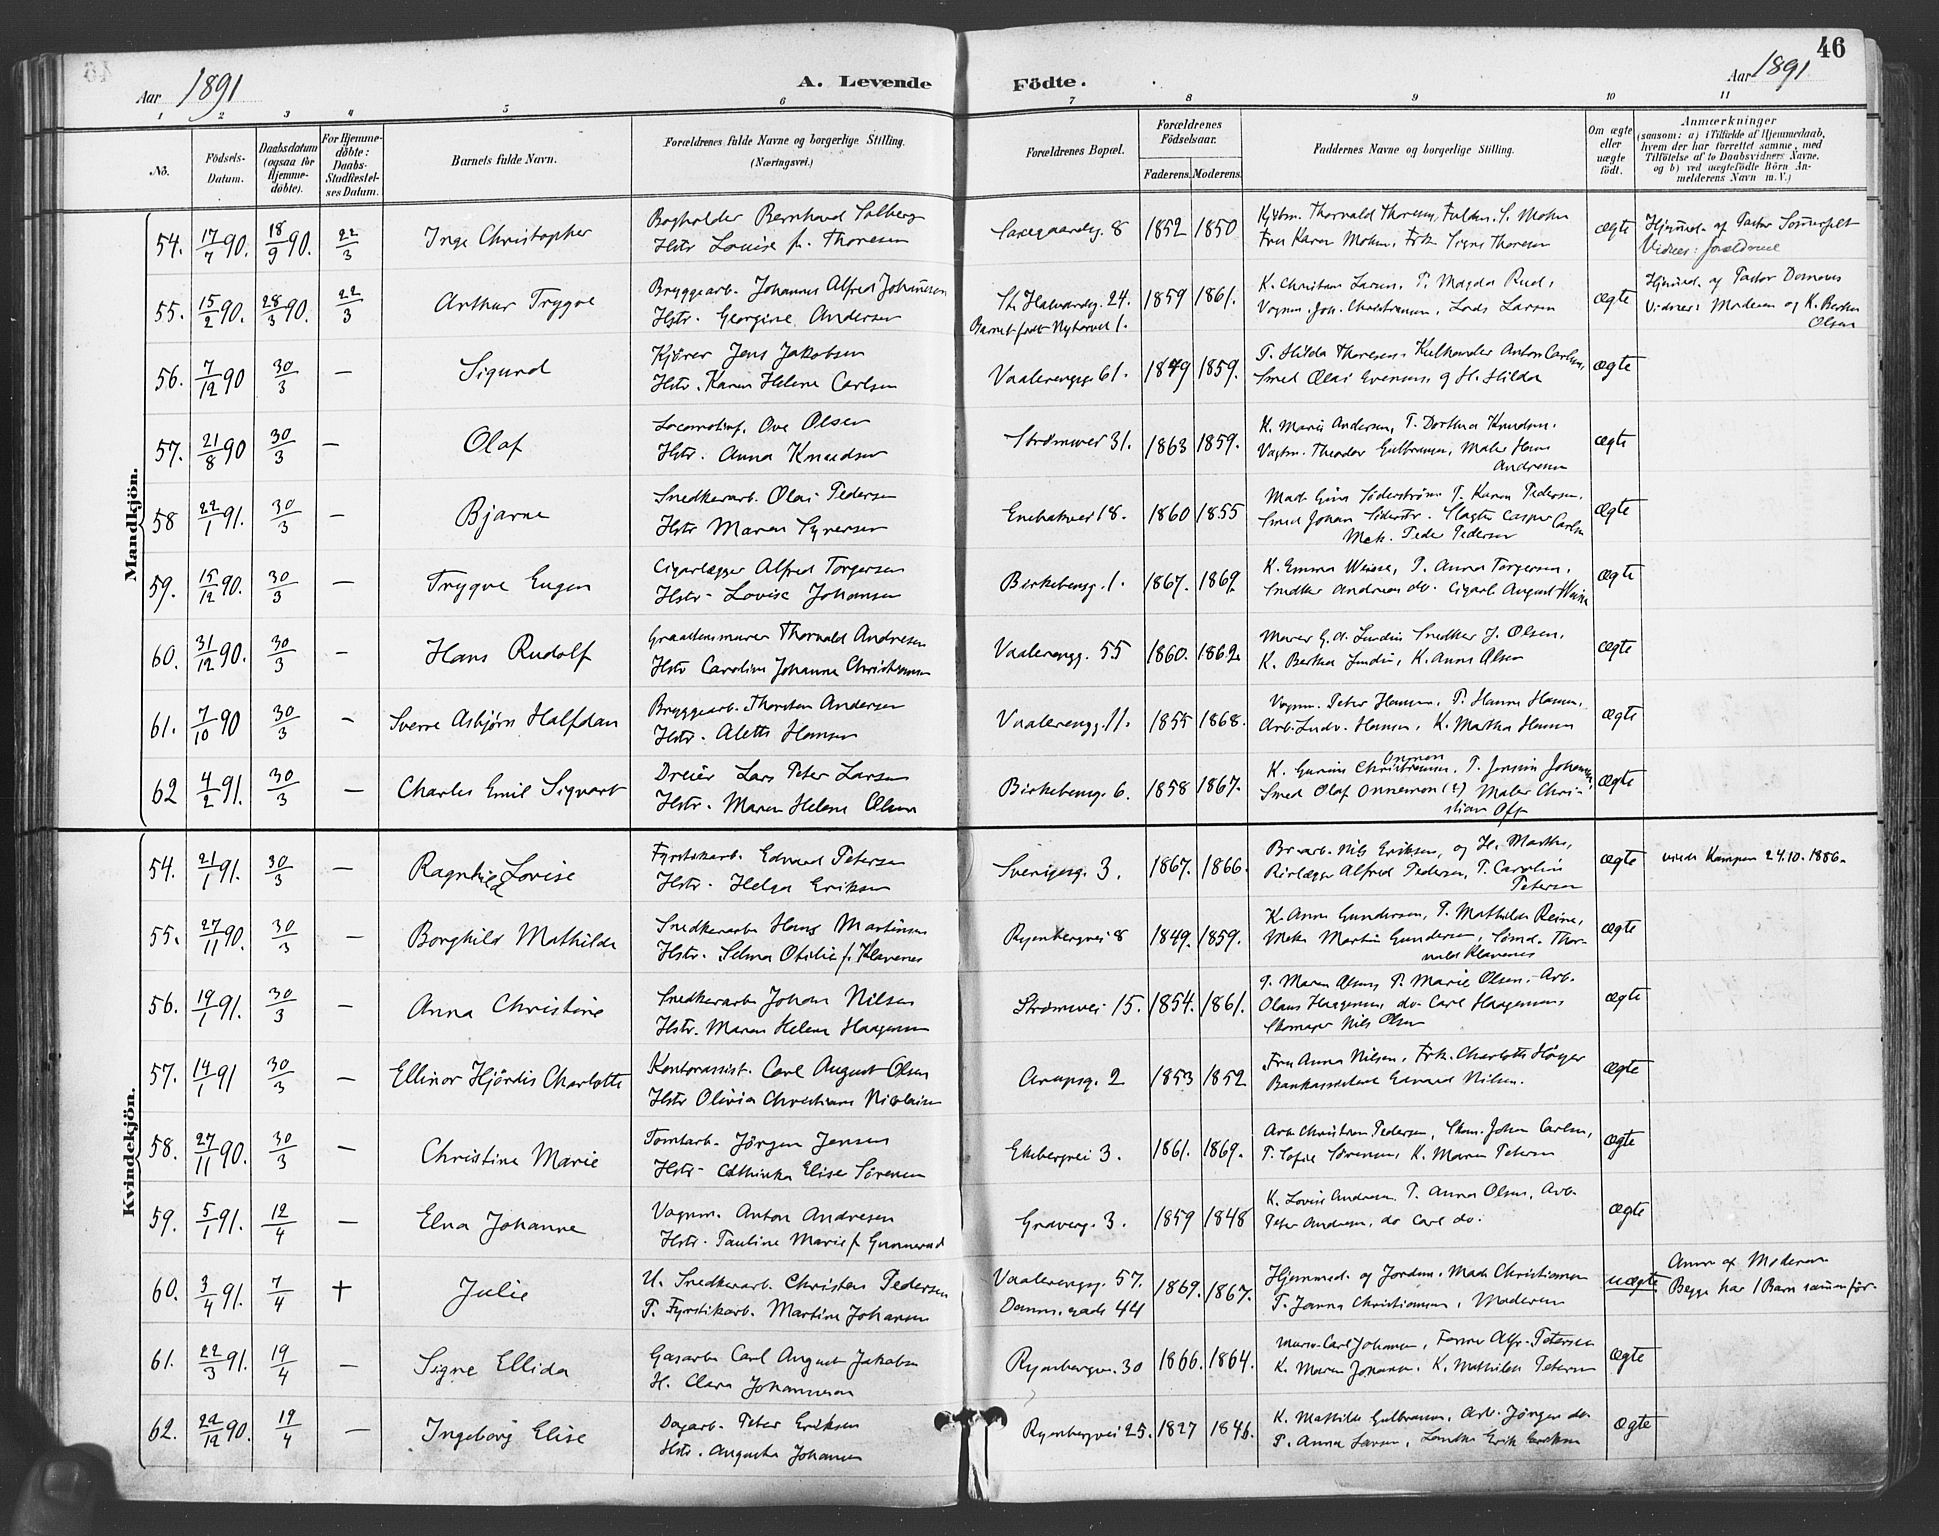 46
Aar 1891
A. Levende Fødte.
Aar 1891
1 2 3 4 5 6 7 8 9 10 11
No.
Födsels-Datum.
Daabsdatum (ogsaa for Hjemme-döbte).
For Hjemme-döbte: Daabs-Stadfæstel-ses Datum.
Barnets fulde Navn.
Forældrenes fulde Navne og borgerlige Stilling.
(Næringsvei.)
Forældrenes Bopæl.
Forældrenes Födselsaar.
Faderens. Moderens.
Faddernes Navne og borgerlige Stilling.
Om ægte eller uægte födt.
Anmærkninger
(saasom: a) i Tilfælde af Hjemmedaab,
hvem der har forrettet samme, med
Tilföielse af to Daabsvidners Navne,
og b) ved uægtefödte Börn An-
melderens Navn m. V.)
Mandkjön.
54. 17/7 90. 18/9 90. 22/3 Inge Christopher
Bogholder Bernhard Solberg
Hstr Louise f. Thoresen
Saxegaardsg. 8 1852 1850
Thorvald Thoresen, S. Mohn
Fru Karen Mohn, Frk. Signe Thoresen
ægte
Hjemmed. af Pastor Sommerfelt
Vidner: forældrene
55. 15/2 90. 28/3 90. 22/3 Arthur Trygve
Bryggearb. Johannes Alfred Johannesen
Hstr. Georgine Andersen
St. Halvardsg. 24. 1859 1861.
Barnet født Nytorvet 1.
K. Christian Larsen, P. Magda Rud,
Vognm. Joh. Christiansen, Lars Larsen
ægte
Hjemmed. af Pastor
Vidner: Moderen og K. Berthe
Olsen
56. 7/12 90 30/3 — Sigurd
Kjører Jens Jakobsen
Hstr. Karen Helene Carlsen
Vaalerengg. 61. 1849 1859.
P. Hilda Thoresen, Kulhandler Anton Carlsen,
Smed Olai Evensen og H. Hilda
ægte
57. 21/8 90 30/3 — Olaf
Locomotivf. Ove Olsen
Hstr. Anna Knudsen
Strømsvei 31. 1863 1859.
K. Marie Andersen, P. Dorthea Knudsen.
Vagtm. Theodor Gulbransen, Maler Hans
Andresen
ægte
58 22/1 91. 30/3 — Bjarne
Snedkerarb. Olai Pedersen
Hstr Maren Syversen
Enebakvei 18. 1860 1855
Mad. Gina Söderström P. Karen Pedersen,
Smed Johan Söderstr. Slagter Casper Carlsen
Mek. Peder Pedersen
ægte
59. 15/12 90. 30/3 — Trygve Eugen
Cigarlægger Alfred Torgersen
Hstr. Lovise Johansen
Birkebeng. 1. 1867. 1869.
K. Emma Weisse, P. Anna Torgersen,
Snedker Andreas do. Cigarb. August Weisse
ægte
60. 31/12 90. 30/3 — Hans Rudolf
Graastensmurer Thorvald Andresen
Hstr Caroline Johanne Christiansen
Vaalerengg. 55 1860. 1862.
Murer G. A. Lundin Snedker J. Olsen,
K. Berthea Lundin, K. Anna Olsen
ægte
61. 7/10 90 30/3 — Sverre Asbjørn Halfdan
Bryggearb. Thorsten Andersen
Hstr. Alette Hansen
Vaalerengg. 11. 1855 1868.
Vognm. Peter Hansen, P. Hanna Hansen,
Arb. Ludv. Hansen, K. Martha Hansen
ægte
62 4/2 91. 30/3 — Charles Emil Sigvart
Dreier Lars Peter Larsen
Hstr. Maren Helene Olsen
Birkebeng. 6. 1858 1867.
Onnemon
K. Gunine Christiansen, P. Jensine Johansen,
Smed Olaf Onnemon (?) Maler Chri-
stian Off
ægte
Kvindekjön.
54. 21/1 91. 30/3 — Ragnhild Lovise
Fyrstikarb. Edvard Petersen
Hstr. Helga Eriksen
Sverigesg. 3. 1867. 1866.
Br. arb. Nils Eriksen, og H. Marthe,
Rørlægger Alfred Pedersen, P. Caroline
Petersen
ægte
viede Kampen 24.10.1886.
55. 27/11 90. 30/3 — Borghild Mathilde
Snedkerarb. Hans Martinsen
Hstr. Selma Otilie f. Klavenes
Ryenbergvei 8 1849. 1859.
K. Anna Gundersen, P. Mathilde Reine,
Mek. Martin Gundersen, Sømd. Thor-
vald Klavenes
ægte
56. 19/1 91. 30/3 — Anna Christine
Snedkerarb. Johan Nilsen
Hstr. Maren Helene Haagensen
Strømsvei 15. 1854. 1861.
P. Maren Olsen, P. Marie Olsen. Arb.
Olaus Haagensen, do Carl Haagensen,
Skomager Nils Olsen
ægte
57. 14/1 91 30/3 — Ellinor Hjördis Charlotte
Kontorassist. Carl August Olsen
Hstr Olivia Christiane Nicolaisen
Arupsg. 2 1853 1852
Fru Anna Nilsen, Frk. Charlotte Höyer
Bankassistent Edvard Nilsen.
ægte
58. 27/11 90. 30/3 — Christine Marie
Tomtarb. Jörgen Jensen
Hstr. Cathinka Elise Sörensen
Ekebergvei 3. 1861. 1869.
Arb. Christian Pedersen, Skom. Johan Carlsen,
P. Sofie Sörensen, K. Maren Petersen
ægte
59. 5/1 91. 12/4 — Elna Johanne
Vognm. Anton Andresen
Hstr. Pauline Marie f. Gunnerud
Graverg. 3. 1859 1848
K. Lovise Andresen, P. Anna Olsen, Arb.
Peter Andresen, do Carl do.
ægte
60. 3/4 91. 7/4 † Julie
U. Snedkerarb. Christen Pedersen
P. Fyrstikarb. Martine Johansen
Vaalerengg. 57. 1869. 1867.
Danm. gade 44
Hjemmed. af Jordm. Mad. Christiansen
P. Janna Christiansen, Moderen
uægte
Anm. af Moderen
Begge har 1 Barn sammen før.
61. 22/3 91. 19/4 — Signe Ellida
Gasarb. Carl August Jakobsen
H. Clara Johannesen
Ryenbergvei 30 1866. 1864.
Murer Carl Johansen, Former Alfr. Petersen
K. Maren Johansen, K. Mathilde Petersen
ægte
62. 22/12 90. 19/4 — Ingeborg Elise
Dagarb. Peter Eriksen
Hstr. Augusta Johansen
Ryenbergvei 25. 1827 1846.
K. Mathilde Gulbransen, Arb. Jörgen do
P. Anna Larsen, Erik Eriksen
ægte